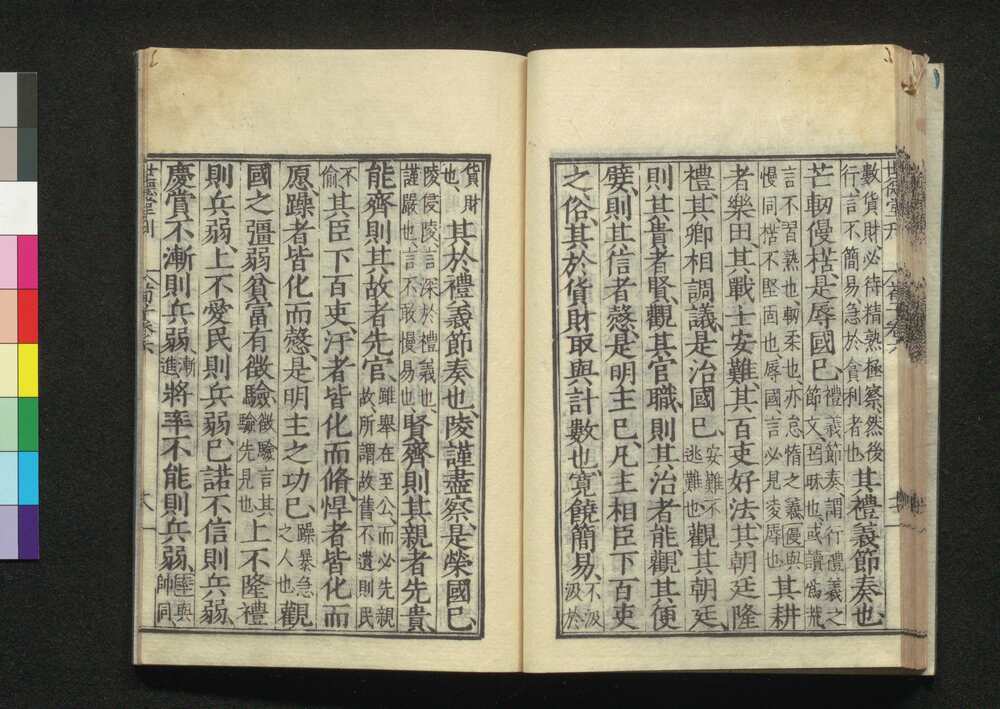 世德堂刊　荀子卷六
數貨財必待精熟極察然後行、言不簡易急於貪利者也其禮義節奏也、
芒軔僈楛、是辱國已、禮義節奏、謂行禮義之節文、芒昧也、或讀為荒
言不習熟也、軔柔也、亦怠惰之義、僈與慢同、楛不堅固也、辱國言必見凌辱也其耕
者樂田其戰士安難、其百吏好法、其朝廷隆
禮、其卿相調議、是治國已、安難不逃難也、觀其朝廷、
則其貴者賢、觀其官職、則其治者能、觀其便
嬖、則其信者愨、是明主已、凡主相臣下百吏
之俗、其於貨財取與計數也、寬饒簡易、不汲汲於
貨財也、其於禮義節奏也、陵謹盡察、是榮國已、
陵侵陵、言深於禮義也、謹嚴也、言不敢慢易也賢齊則其親者先貴、
能齊則其故者先官、雖舉在至公、而必先親故、所謂故舊不遺則民
不偷其臣下百吏、汙者皆化而脩、悍者皆化而
愿、躁者皆化而愨、是明主之功已、躁暴急之人也觀
國之彊弱貧富有徵驗、徵驗言其驗先見也上不隆禮
則兵弱、上不愛民則兵弱、已諾不信則兵弱、
慶賞不漸則兵弱、漸進將率不能則兵弱、率與帥同
世德堂刊　荀子卷六